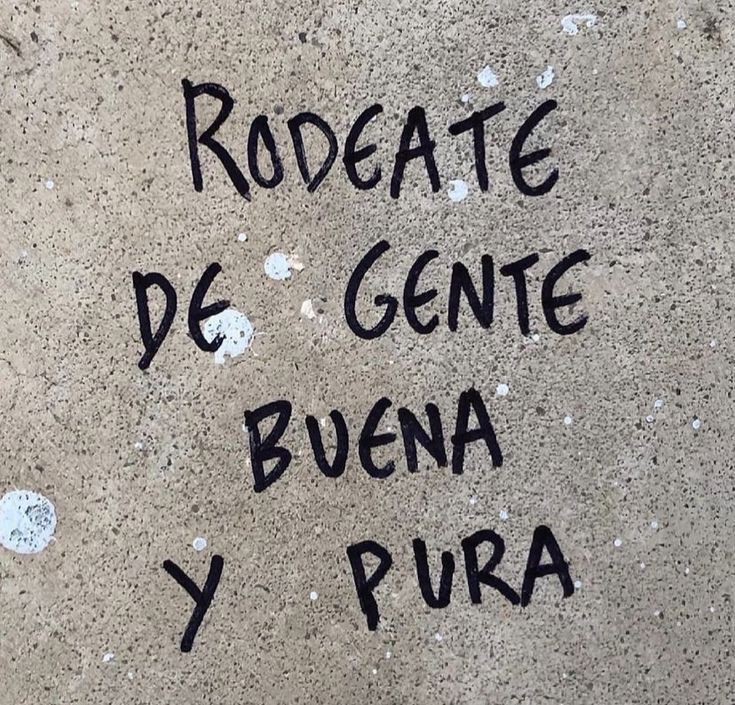 RODEATE
DE GENTE
BUENA
Y PURA